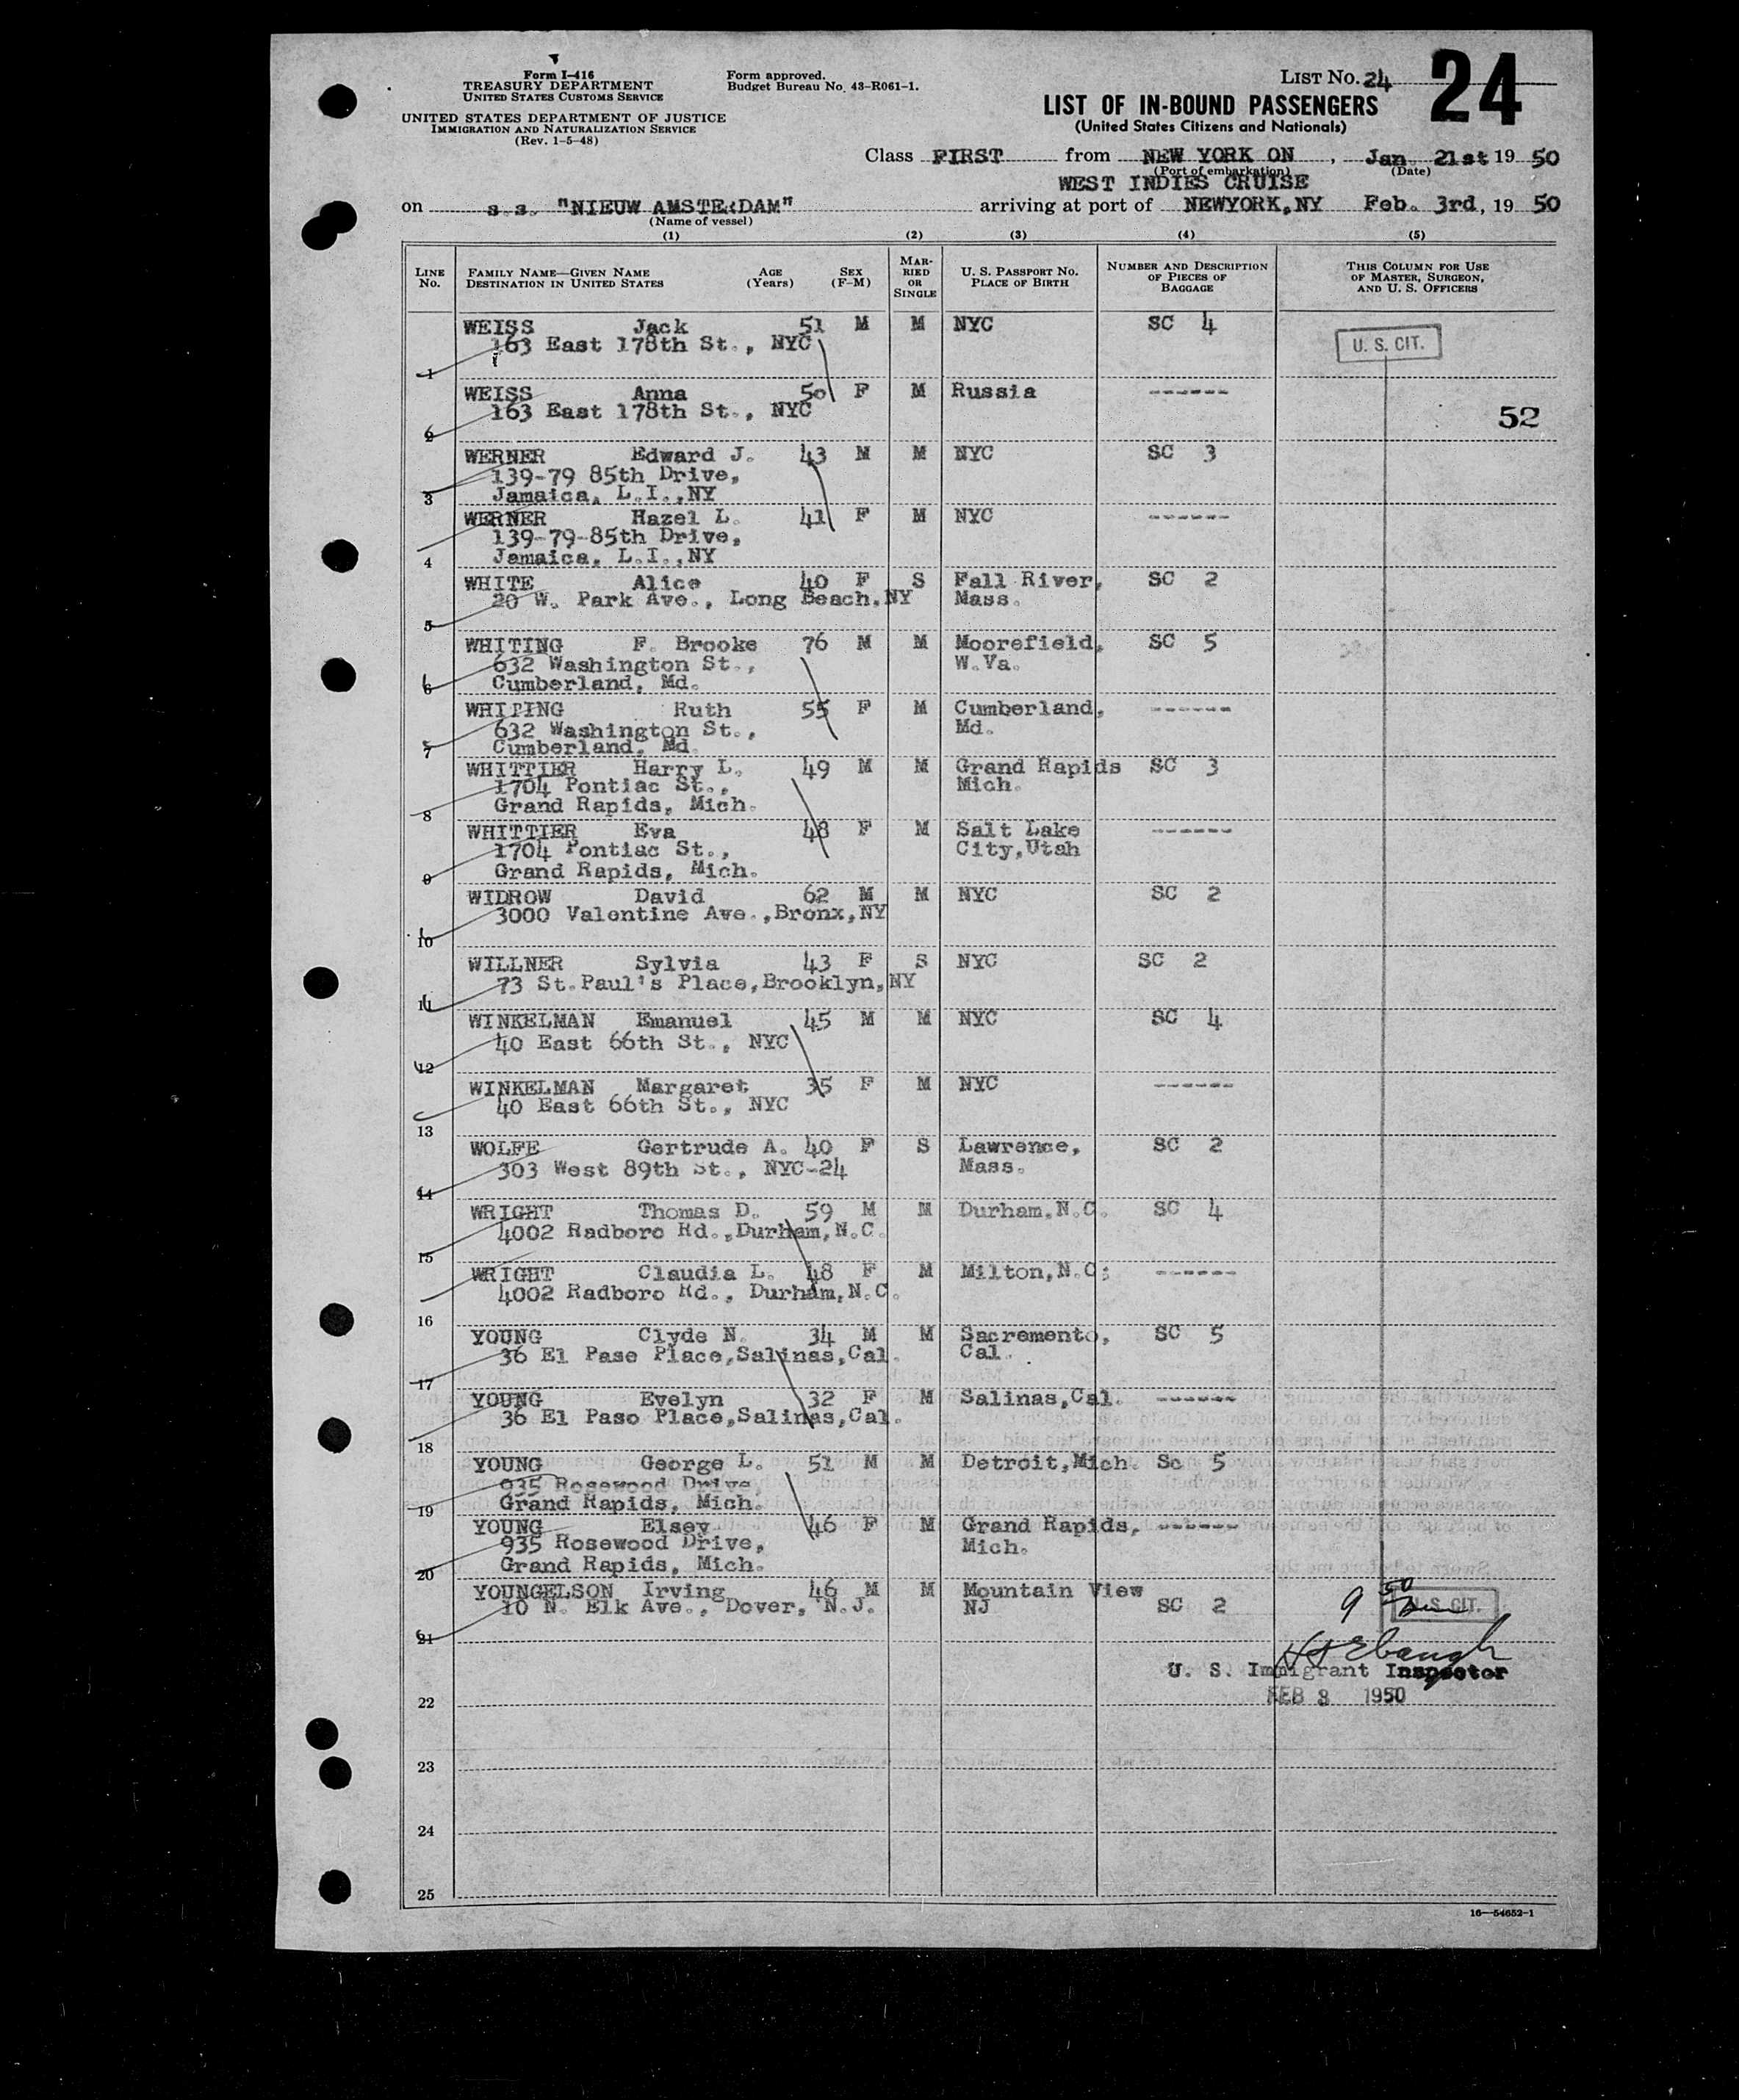 Form I-416
TREASURY DEPARTMENT
UNITED STATES CUSTOMS SERVICE
UNITED STATES DEPARTMENT OF JUSTICE
IMMIGRATION AND NATURALIZATION SERVICE
(Rev. 1-5-48)
Form approved.
Budget Bureau No. 43-R061-1.
LIST No. 24
24
LIST OF IN-BOUND PASSENGERS
(United States Citizens and Nationals)
Class FIRST from NEW YORK ON , Jan. 21st 19 50
(Port of embarkation) (Date)
WEST INDIES CRUISE
on s.s. "NIEUW AMSTERDAM" arriving at port of NEWYORK,NY Feb. 3rd, 19 50
(Name of vessel)
(1) (2) (3) (4) (5)
LINE No. FAMILY NAME—GIVEN NAME DESTINATION IN UNITED STATES AGE (Years) SEX (F-M) MARRIED OR SINGLE U. S. PASSPORT NO. PLACE OF BIRTH NUMBER AND DESCRIPTION OF PIECES OF BAGGAGE THIS COLUMN FOR USE OF MASTER, SURGEON, AND U. S. OFFICERS
WEISS Jack 51 M M NYC SC 4
163 East 178th St., NYC U. S. CIT.
1
WEISS Anna 50 F M Russia ------
163 East 178th St., NYC 52
2
WERNER Edward J. 43 M M NYC SC 3
139-79 85th Drive,
3 Jamaica, L.I.,NY
WERNER Hazel L. 41 F M NYC ------
139-79-85th Drive,
4 Jamaica, L.I.,NY
WHITE Alice 40 F S Fall River, SC 2
20 W. Park Ave., Long Beach,NY Mass.
5
WHITING F. Brooke 76 M M Moorefield, SC 5
632 Washington St., W.Va.
6 Cumberland, Md.
WHITING Ruth 55 F M Cumberland, ------
632 Washington St., Md.
7 Cumberland, Md.
WHITTIER Harry L. 49 M M Grand Rapids SC 3
1704 Pontiac St., Mich.
8 Grand Rapids, Mich.
WHITTIER Eva 48 F M Salt Lake ------
1704 Pontiac St., City,Utah
9 Grand Rapids, Mich.
WIDROW David 62 M M NYC SC 2
3000 Valentine Ave.,Bronx,NY
10
WILLNER Sylvia 43 F S NYC SC 2
73 St.Paul's Place,Brooklyn,NY
11
WINKELMAN Emanuel 45 M M NYC SC 4
40 East 66th St., NYC
12
WINKELMAN Margaret 35 F M NYC ------
40 East 66th St., NYC
13
WOLFE Gertrude A. 40 F S Lawrence, SC 2
303 West 89th St., NYC-24 Mass.
14
WRIGHT Thomas D. 59 M M Durham,N.C. SC 4
4002 Radboro Rd.,Durham,N.C.
15
WRIGHT Claudia L. 48 F M Milton,N.C: ------
4002 Radboro Rd., Durham,N.C.
16
YOUNG Clyde N. 34 M M Sacremento, SC 5
36 El Pase Place,Salinas,Cal. Cal.
17
YOUNG Evelyn 32 F M Salinas,Cal. ------
36 El Paso Place,Salinas,Cal.
18
YOUNG George L. 51 M M Detroit,Mich. Sc 5
935 Rosewood Drive,
19 Grand Rapids, Mich.
YOUNG Elsey 46 F M Grand Rapids, ------
935 Rosewood Drive, Mich.
20 Grand Rapids, Mich.
YOUNGELSON Irving 46 M M Mountain View
10 N. Elk Ave., Dover, N.J. NJ SC 2 U.S. CIT.
21
U. S. Immigrant Inspector
22 FEB 3 1950
23
24
25
16—54652-1